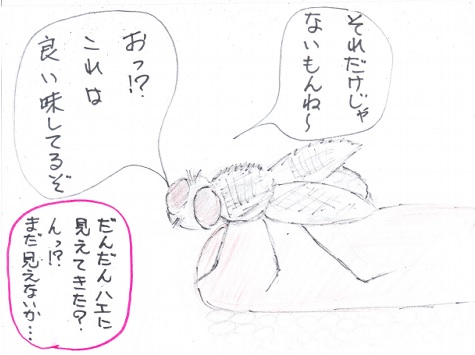 それだけじゃ
ないもんね〜
おっ!?
これは
良い味してるぞ
だんだんハエに
見えてきた?
んっ!?
まだ見えないか…